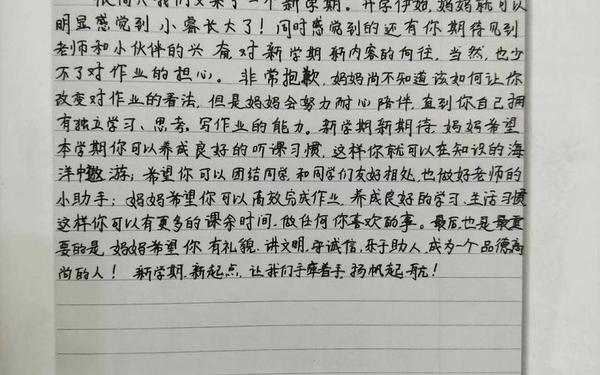 我们又来了一个新学期。开学伊始,妈妈就可以
明显感觉到小睿长大了!同时感觉到的还有你期待见到
老师和小伙伴的兴奋,对新学期新内容的向往,当然,也少
不了对作业的担心。非常抱歉,妈妈尚不知道该如何让你
改变对作业的看法,但是妈妈会努力耐心陪伴,直到你自己拥
有独立学习、思考、写作业的能力。新学期新期待,妈妈希望
本学期你可以养成良好的听课习惯,这样你就可以在知识的海
洋中遨游;希望你可以团结同学,和同学们友好相处,也做好老师的
小助手;妈妈希望你可以高效完成作业,养成良好的学习、生活习惯
这样你可以有更多的课余时间,做任何你喜欢的事。最后,也是最重
要的是,妈妈希望你有礼貌、讲文明、守诚信、乐于助人,成为一个品德高
尚的人!新学期,新起点,让我们手牵着手,扬帆起航!